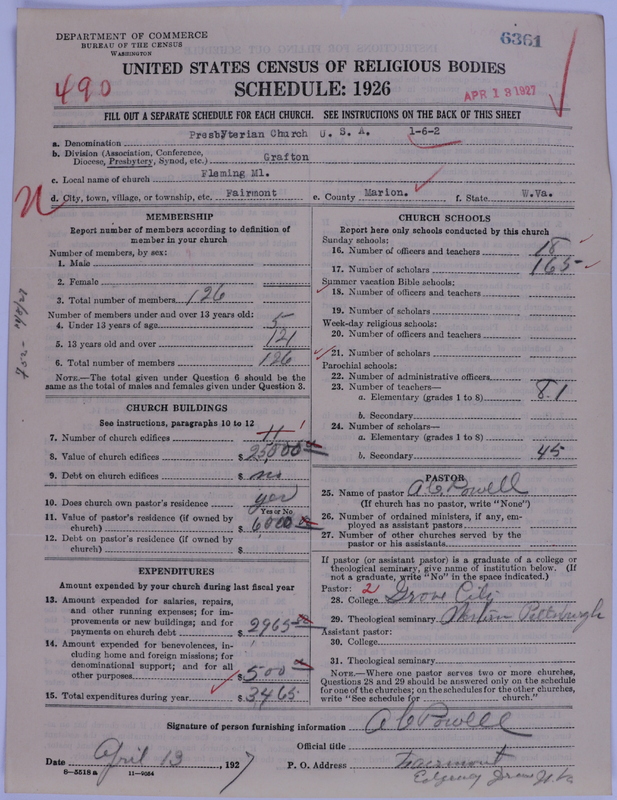 DEPARTMENT OF COMMERCE
BUREAU OF THE CENSUS
WASHINGTON
6361
490
UNITED STATES CENSUS OF RELIGIOUS BODIES
SCHEDULE: 1926
APR 13 1927
FILL OUT A SEPARATE SCHEDULE FOR EACH CHURCH. SEE INSTRUCTIONS ON THE BACK OF THIS SHEET
a. Denomination Presbyterian Church U. S. A. 1-6-2
b. Division (Association, Conference, Diocese, Presbytery, Synod, etc.) Grafton
c. Local name of church Fleming Ml.
d. City, town, village, or township, etc. Fairmont e. County Marion. f. State W.Va.
MEMBERSHIP
Report number of members according to definition of
member in your church
Number of members, by sex:
1. Male
2. Female
3. Total number of members 126
Number of members under and over 13 years old:
4. Under 13 years of age 5
5. 13 years old and over 121
6. Total number of members 126
NOTE.—The total given under Question 6 should be the
same as the total of males and females given under Question 3.
CHURCH BUILDINGS
See instructions, paragraphs 10 to 12
7. Number of church edifices 11 1
8. Value of church edifices $ 25,000
9. Debt on church edifices $ no
10. Does church own pastor's residence yes
Yes or No
11. Value of pastor's residence (if owned by
church) $ 6,000
12. Debt on pastor's residence (if owned by
church) $
EXPENDITURES
Amount expended by your church during last fiscal year
13. Amount expended for salaries, repairs,
and other running expenses; for im-
provements or new buildings; and for
payments on church debt $ 2965
14. Amount expended for benevolences, in-
cluding home and foreign missions; for
denominational support; and for all
other purposes $ 500
15. Total expenditures during year $ 3465
CHURCH SCHOOLS
Report here only schools conducted by this church
Sunday schools:
16. Number of officers and teachers 18
17. Number of scholars 165
Summer vacation Bible schools:
18. Number of officers and teachers
19. Number of scholars
Week-day religious schools:
20. Number of officers and teachers
21. Number of scholars
Parochial schools:
22. Number of administrative officers
23. Number of teachers—
a. Elementary (grades 1 to 8) 81
b. Secondary
24. Number of scholars—
a. Elementary (grades 1 to 8)
b. Secondary 45
PASTOR
25. Name of pastor A C Powell
(If church has no pastor, write "None")
26. Number of ordained ministers, if any, em-
ployed as assistant pastors
27. Number of other churches served by the
pastor or his assistants
If pastor (or assistant pastor) is a graduate of a college or
theological seminary, give name of institution below. (If
not a graduate, write "No" in the space indicated.)
Pastor: 2
28. College Grove City
29. Theological seminary Western Pittsburgh
Assistant pastor:
30. College
31. Theological seminary
NOTE.—Where one pastor serves two or more churches,
Questions 28 and 29 should be answered only on the schedule
for one of the churches; on the schedules for the other churches,
write "See schedule for church."
Signature of person furnishing information A C Powell
Official title
Date April 13, 1927 P. O. Address Fairmont
8-5518 a 11-9054